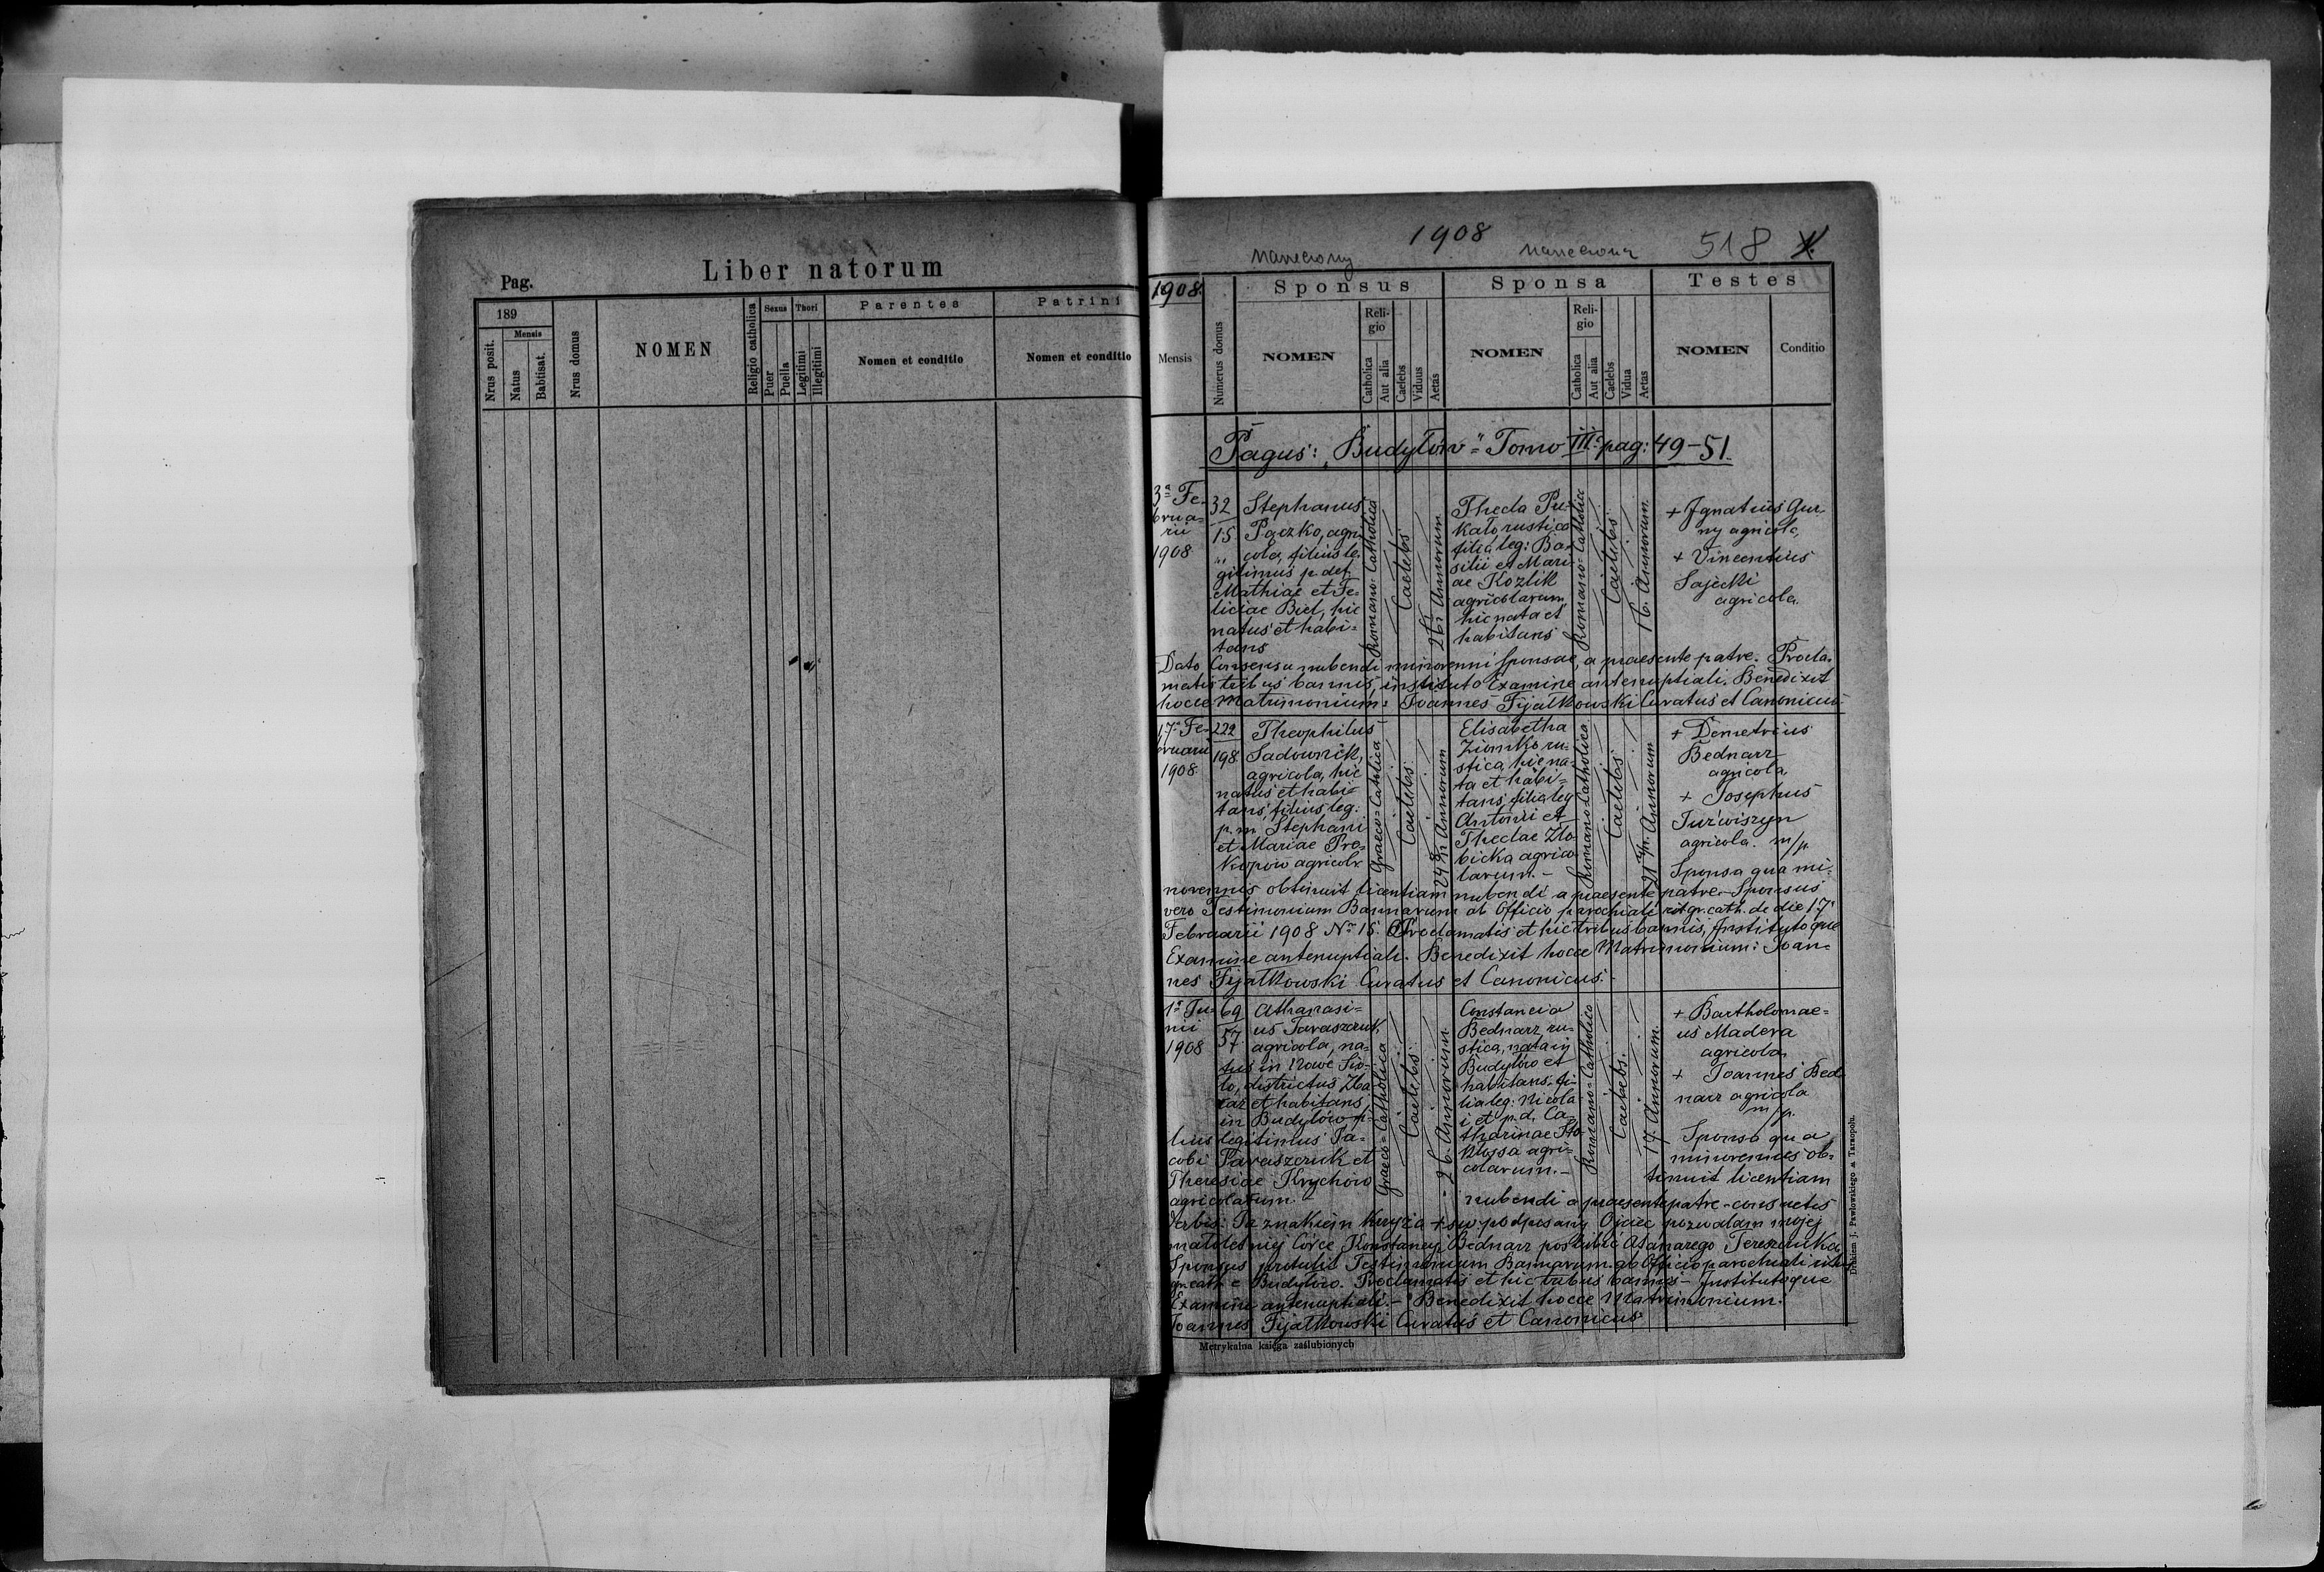 Pag.
Liber natorum
189
Nrus posit.
Mensis
Natus
Babtisat.
Nrus domus
NOMEN
Religio catholica
Sexus
Puer
Puella
Thori
Legitimi
Illegitimi
Parentes
Nomen et conditio
Patrini
Nomen et conditio
1908
518
1908.
Mensis
Numerus domus
Sponsus
NOMEN
Reli-
gio
Catholica
Aut alia
Caelebs
Viduus
Aetas
Sponsa
NOMEN
Reli-
gio
Catholica
Aut alia
Caelebs
Vidua
Aetas
Testes
NOMEN
Conditio
Pagus: "Budyłów" = Tomo III. pag: 49-51.
3a Fe-
brua-
rii
1908
32
15
Stephanus
Paczko, agri-
cola, filius le-
gitimus p. def.
Mathiae et Fe-
liciae Biel, hic
natus et habi-
tans
Romano-Catholica
Caelebs
26. Annorum
Thecla Pu-
kało rustica
filia leg: Ba-
silii et Mari-
ae Kozlik
agricolarum
hic nata et
habitans
Romano-Catholica
Caelebs
16. Annorum
+ Ignatius Gur-
ny agricola,
+ Vincentius
Sajecki
agricola.
Dato Consensu nubendi minorenni Sponsae, a praesente patre. Procla-
matis tribus bannis, instituto Examine antenuptiali. Benedixit
hocce Matrimonium: Joannes Fijałkowski Curatus et Canonicus
17 Fe-
bruarii
1908.
222
198
Theophilus
Sadownik,
agricola, hic
natus et habi-
tans, filius leg.
p. m. Stephani
et Mariae Pro-
kopow agricolar
Graeco-Catolica
Caelebs
24 Annorum
Elisabetha
Ziomko ru-
stica, hic na-
ta et habi-
tans, filia leg
Antonii et
Theclae Zło-
bicka agrico-
larum.-
Romano-Catholica
Caelebs
21 Annorum
+ Demetrius
Bednarz
agricola,
+ Josephus
Jurwiszyn
agricola. m/p.
Sponsa qua mi-
norennis obtinuit licentiam nubendi a praesente patre.- Sponsus
vero Testimonium Bannarum ab Officio parochiali rit gr. cath. de die 17
Februarii 1908 No 15. Proclamatis et hic tribus bannis, Institutoque
Examine antenuptiali. Benedixit hocce Matrimonium: Joan-
nes Fijałkowski Curatus et Canonicus.-
1a Ju-
nii
1908
69
57
Athanasi-
us Taraszczuk,
agricola, na-
tus in Nowe Sio-
ło, districtus Zba-
raz et habitans
in Budyłów fi-
lius legitimus Ja-
cobi Taraszczuk et
Theresiae Krychow
agricolarum.
Graeco-Catholica
Caelebs
26. Annorum
Constancia
Bednarz ru-
stica, nata in
Budyłów et
habitans. fi-
lia leg: Nicola-
i et p. d. Ca-
tharinae
Kłossa agri-
colarum.-
Romano-Catholica
Caelebs.
17. Annorum
+ Bartholomae-
us Madera
agricola,
+ Joannes Bed-
narz agricola
m/p.
Sponsa qua
minorennis ob-
tinuit licentiam
nubendi a praesente patre-consuetis
Verbis: Ja znakiem Krzyża + św podpisany Ojciec pozwalam mojej
małoletniej Córce Konstancyi Bednarz poślubić Atanazego Tereszczuka
Sponsus protulit Testimonium Bannarum ab Officio parochiali ritus
gr. cath. e Budyłów. Proclamatis et hic tribus bannis - Institutoque
Examine antenuptiali.- Benedixit hocce Matrimonium.
Joannes Fijałkowski Curatus et Canonicus
Metrykalna księga zaślubionych
Drukiem J. Pawłowskiego w Tarnopolu.